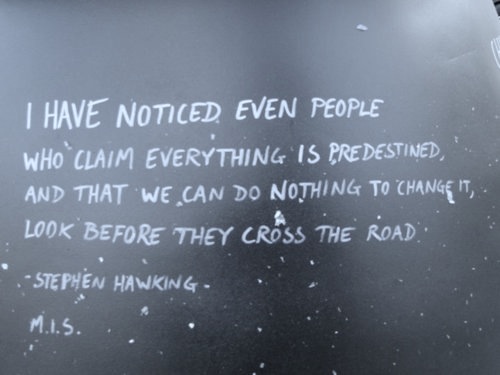 I HAVE NOTICED EVEN PEOPLE
WHO CLAIM EVERYTHING IS PREDESTINED,
AND THAT WE CAN DO NOTHING TO CHANGE IT,
LOOK BEFORE THEY CROSS THE ROAD
- STEPHEN HAWKING -
M.I.S.